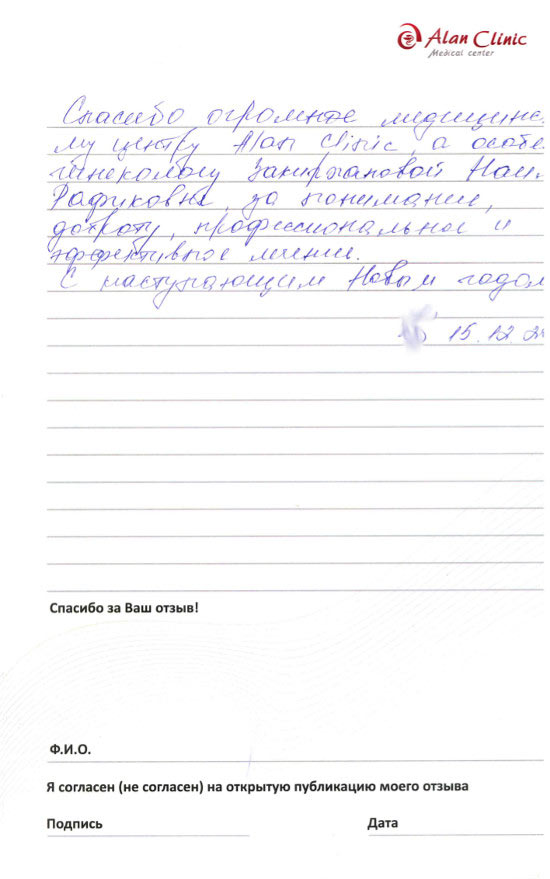 Alan Clinic
Medical center
Спасибо огромное медицинс
му центру Alan Clinic, а особе
гинекологу Закиржановой Наи
Рафиковне, за понимание,
доброту, профессиональное и
эффективное лечение.
С наступающим Новым годом
15.12.2
Спасибо за Ваш отзыв!
Ф.И.О.
Я согласен (не согласен) на открытую публикацию моего отзыва
Подпись
Дата